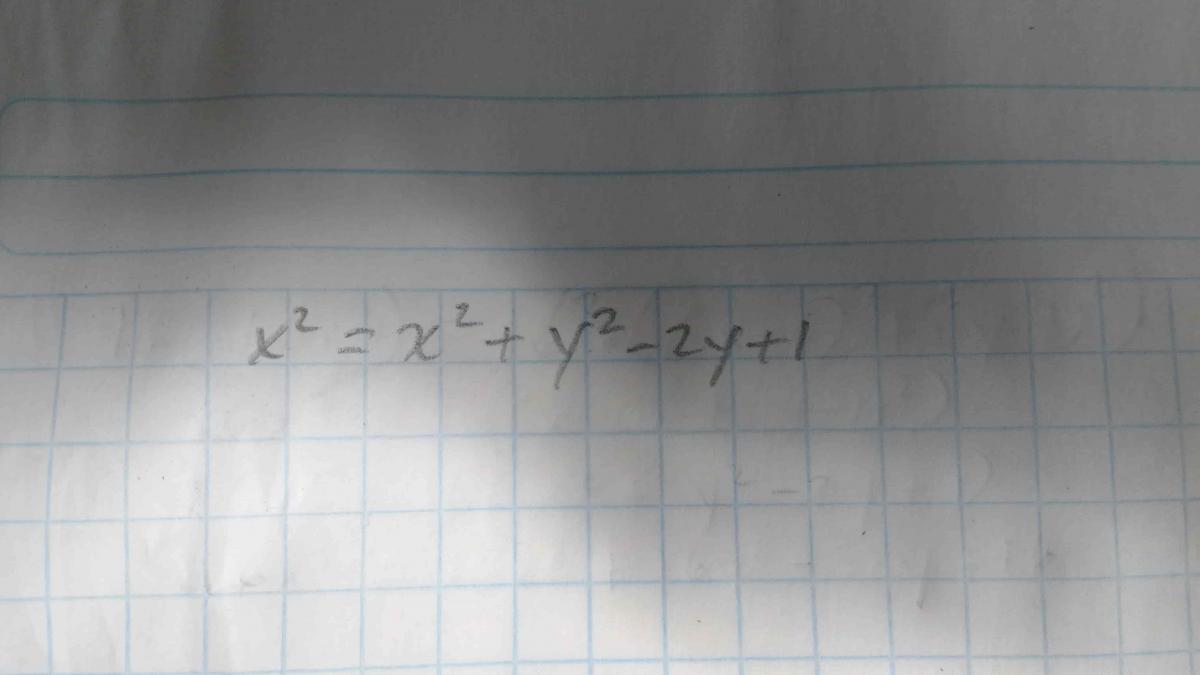 x² = x² + y² - 2y + 1